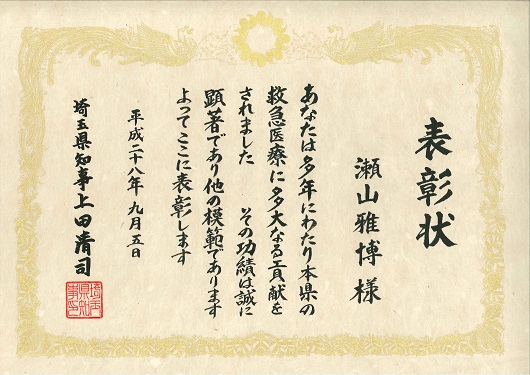 表彰状
瀬山雅博様
あなたは多年にわたり本県の
救急医療に多大なる貢献を
されました　その功績は誠に
顕著であり他の模範であります
よってここに表彰します
平成二十八年九月五日
埼玉県知事上田清司